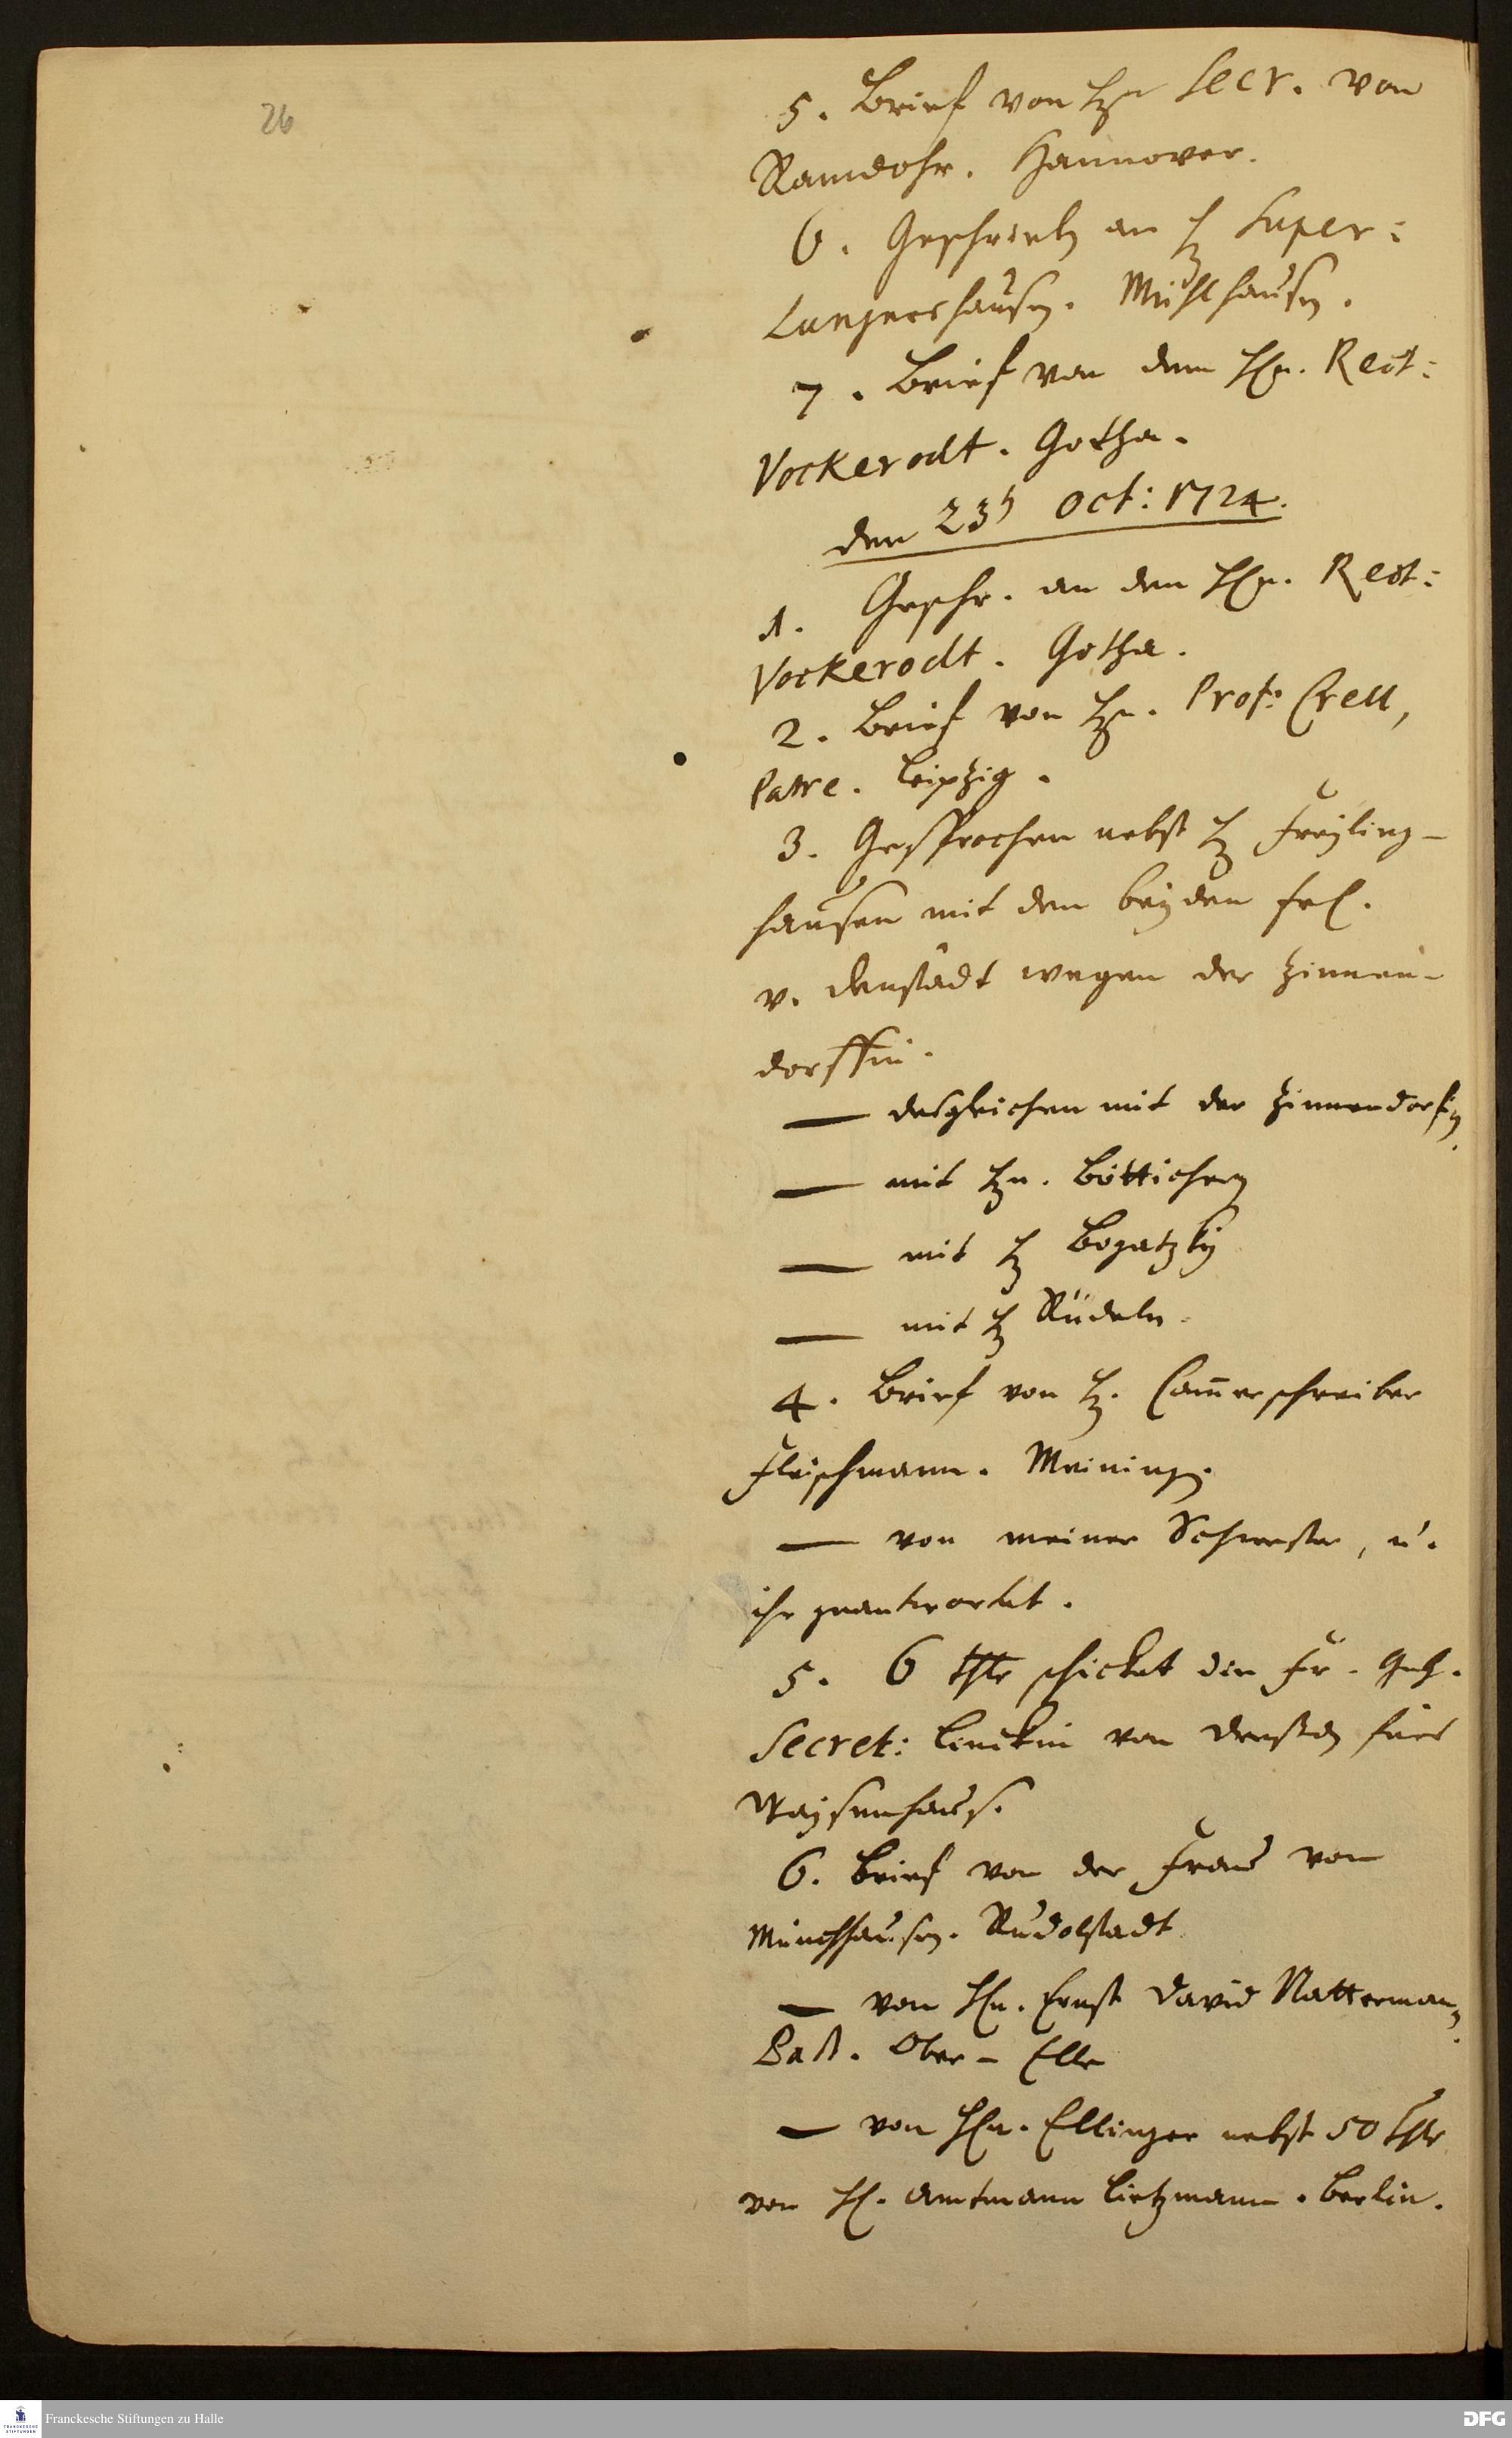 26
5. Brief von Hn Secr. von
Ramdohr. Hannover.
6. Geschrieb. an H Super:
Lungershausen. Mühlhausen.
7. Brief von dem Hn. Rect:
Vockerodt. Gotha.
den 23t Oct: 1724.
1. Geschr. an den Hn. Rect:
Vockerodt. Gotha.
2. Brief von Hn. Prof: Crell,
Patre. Leipzig.
3. Gesprochen nebst H Freyling-
hausen mit den beyden Frl.
v. Denstädt wegen der Zinnen-
dorffin.
— desgleichen mit der Zinnendorfin.
— mit Hn. Böttichern
— mit H Bogatzky
— mit H Rüdeln.
4. Brief von H. Cam̄erschreiber
Fleischmann. Meiningen.
— von meiner Schwester, u.
ihr geantwortet.
5. 6 thlr schicket die Fr. Geh.
Secret: Linckin von Dreßden fürs
Waysenhaus.
6. Brief von der Frau von
Münchhausen. Rudolstadt
— von Hn. Ernst David Natterman.
Past. Ober-Elle
— von Hn. Ellinger nebst 50 thlr
von H. Amtmann Lietzmann. Berlin.
Franckesche Stiftungen zu Halle
DFG